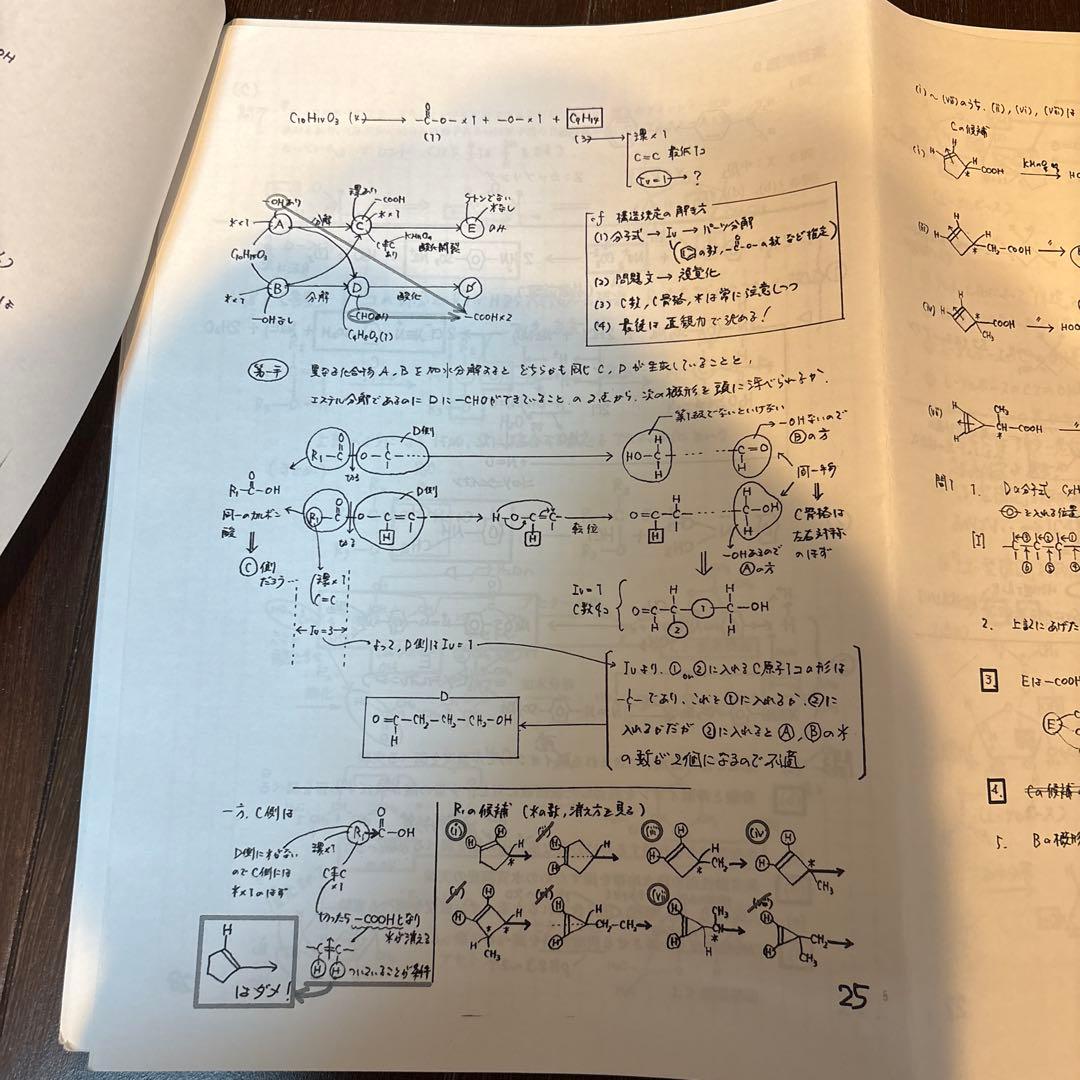 C₁₀H₁₄O₃ (4) → -C-O- ×1 + -O- ×1 + C₉H₁₄
O
(1)
(3)
環×1
C=C 最低1コ
Iu=1 → ?
-OHあり
*×1
A
分解
C₁₀H₁₄O₃
環あり
-COOH
*×1
C
C=C
あり
KMnO₄
酸化開裂
E
*なし
B
*×1
-OHなし
分解
D
-CHOあり
C₄H₈O₂(1)
酸化
D'
-COOH×2
cf 構造決定の解き方
(1) 分子式→Iu→パーツ分解
の数, -C-O-の数など推定)
(2) 問題文→視覚化
(3) C数, C骨格, *は常に注意しつつ
(4) 最後は正銀力で決める!
第一手 異なる化合物A, Bを加水分解すると どちらも同じC, Dが生成していることと,
エステル分解であるのにDに-CHOができていること の2点から, 次の概形を頭に浮べられるか.
第1級でないといけない
D側
R₁-C
O
O-C-
HO-C-
H
C=O
-OHないので
Bの方
R₁-C-OH
同一のカルボン
酸
C側
だろう
D側
転位
同一手
C骨格は
左右対称
のはず
-OHあるので
Aの方
環×1
C=C
Iu=3
よって, D側はIu=1
Iu=1
C数4コ
O=C-C-①-C-OH
②
Iuより, ① or ②に入れるC原子1コの形は
-C- であり, これを①に入れるか, ②に
入れるかだが ②に入れるとA, Bの*
の数が2個になるので不適
D
O=C-CH₂-CH₂-CH₂-OH
H
一方, C側は
R₁-C-OH
O
D側に*がない
のでC側には
*×1のはず
環×1
C=C
×1
切ったら-COOHとなり
*が消える
-C=C-
H H ついていることが条件
H
はダメ!
R₁の候補 (*の数, 消え方を見る)
(i)
(ii)
(iii)
CH₂
(iv)
CH₃
(v)
CH₃
(vi)
CH₂-CH₂
(vii)
CH₃
(viii)
CH₂
CH₃
25
(i)~(viii)のうち, (ii), (vi), (viii)は
Cの候補
(i)
COOH
KMnO₄
HO
(iii)
CH₂-COOH
(iv)
COOH
CH₃
HOO
(vii)
CH₃
CH-COOH
問1 1. Dの分子式
を入れる位置
[I]
2. 上記にあげた
3. Eは-COOH
E
4. Cの候補
5. Bの概形